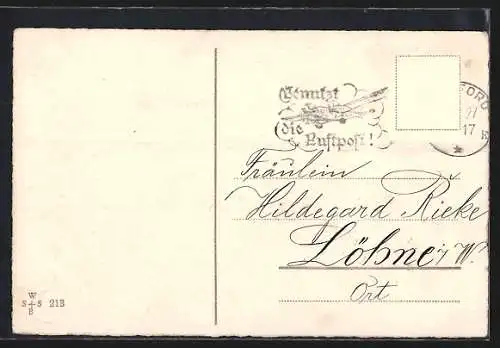 Benutzt
die
Luftpost!
FORD
17
Fräulein
Hildegard Rieke
Löhne i/W.
Ort
W
S+S 213
B